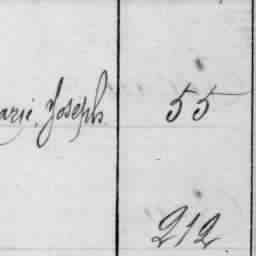 arie Joseph 55
212